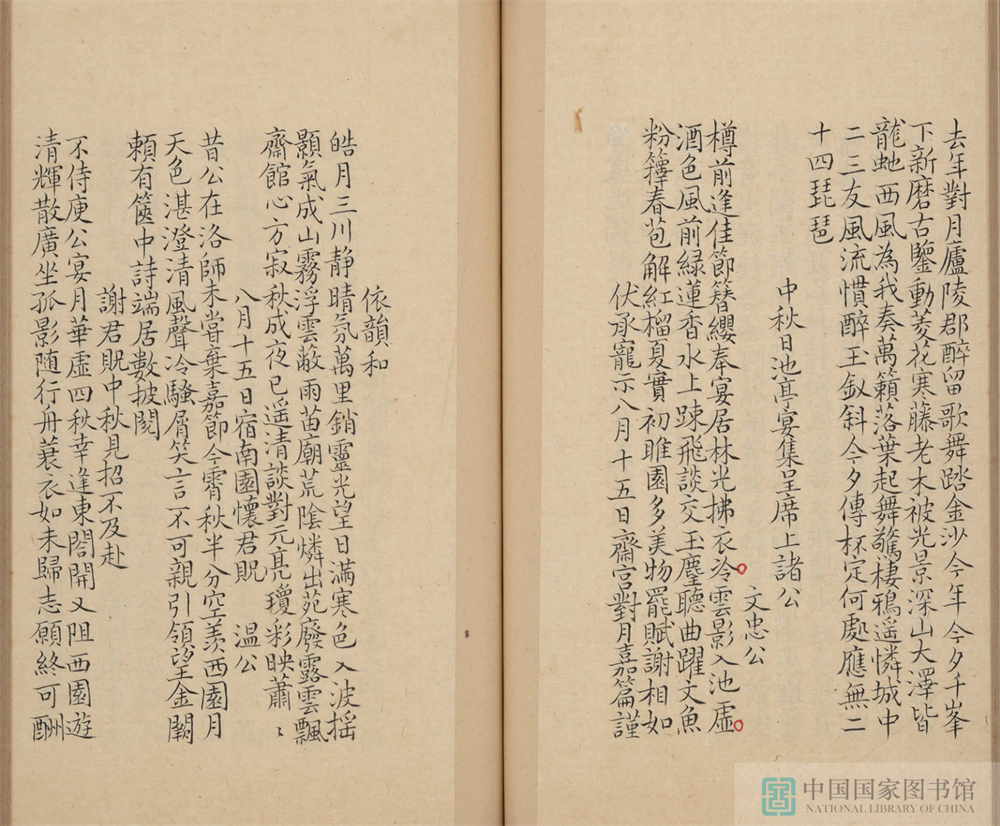 去年對月廬陵郡醉留歌舞踏金沙今年今夕千峯
下新磨古鑒動菱花寒藤老木被光景深山大澤皆
龍虵西風為我奏萬籟落葉起舞驚棲鴉遥憐城中
二三友風流慣醉玉釵斜今夕傳杯定何處應無二
十四琵琶
中秋日池亭宴集呈席上諸公
文忠公
樽前逢佳節簪纓奉宴居林光拂衣冷雲影入池虛
酒色風前緑蓮香水上踈飛談交玉麈聽曲躍文魚
粉籜春苞解紅榴夏實初睢園多美物罷賦謝相如
伏承寵示八月十五日齋宮對月嘉篇謹
依韻和
皓月三川静晴氛萬里銷靈光望日滿寒色入波摇
顥氣成山霧浮雲蔽雨苗廟荒陰燐出苑廢露雲飄
齋館心方寂秋成夜已遥清談對元亮瓊彩映蕭〻
八月十五日宿南園懷君貺 温公
昔公在洛師未甞棄嘉節今霄秋半分空羨西園月
天色湛澄清風聲冷騷屑笑言不可親引領望金闕
頼有篋中詩端居數披閱
謝君貺中秋見招不及赴
不侍庾公宴月華虛四秋幸逢東閤開又阻西園遊
清輝散廣坐孤影随行舟蓑衣如未歸志願終可酬
中国国家图书馆
NATIONAL LIBRARY OF CHINA